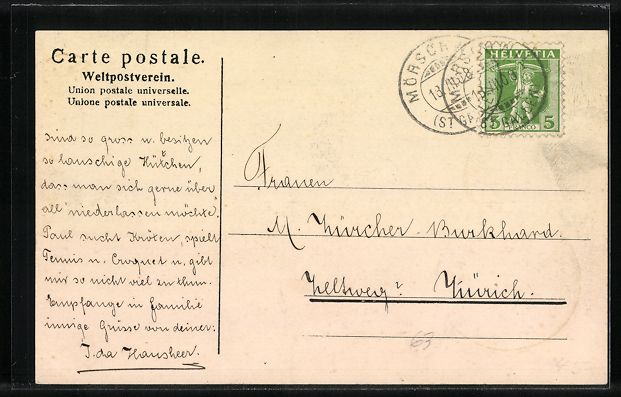 Carte postale.
Weltpostverein.
Union postale universelle.
Unione postale universale.
sind so gross u. besitzen
so lauschige Hüttchen,
dass man sich gerne über
all niederlassen möchte.
Paul sucht Kröten, spielt
Tennis u. Croquet u. gibt
mir so nicht viel zu thun.
Empfange in familie
innige Grüsse von deiner:
Ida Hausheer.
MÖRSCHWIL
18
(ST. GALLEN)
MÖRSCHWIL
HELVETIA
5 5
FRANCO
Frauen
M. Zürcher-Burkhard.
Zeltweg Zürich.
63